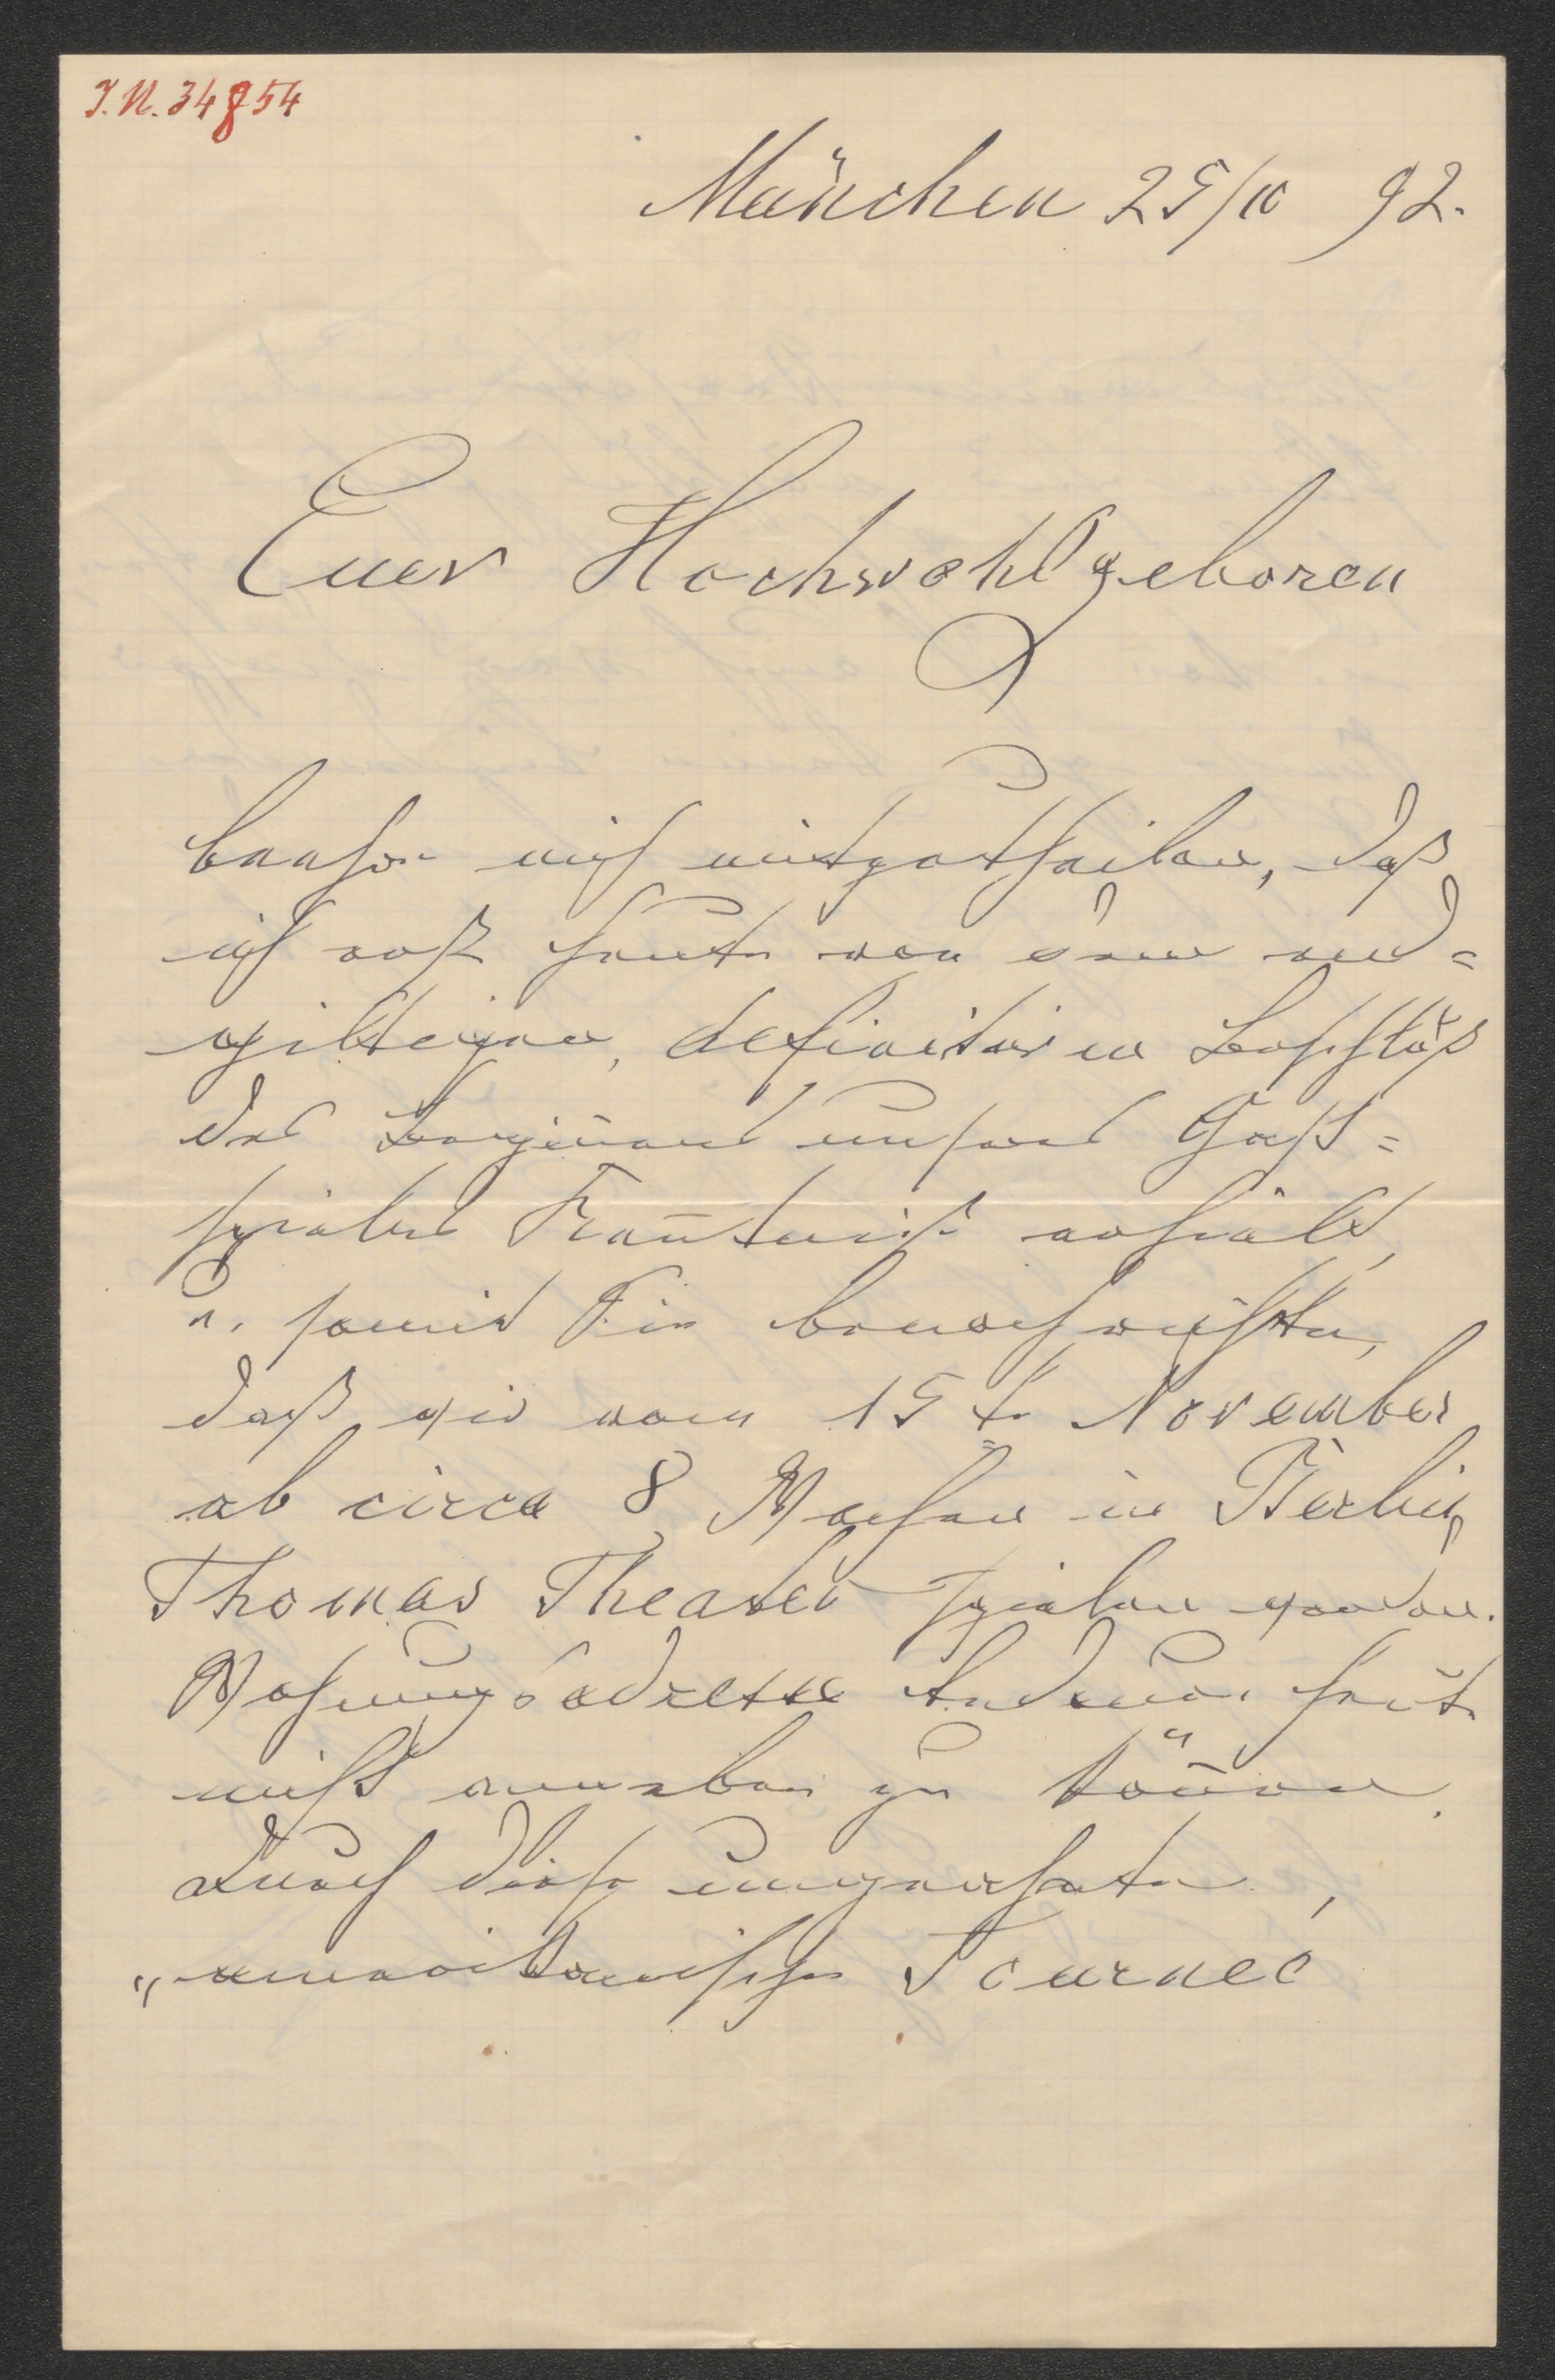 J.N. 34854
München 25/10 92.
Euer Hochwohlgeboren
beehre mich mitzutheilen, daß
ich erst heute von dem end=
giltigen, definitiven Beschluß
des Beginnes unseres Gast=
spieles Kenntniß erhielt,
u. somit Sie benachrichte,
daß wir vom 15t. November
ab circa 8 Wochen in Berlin,
Thomas Theater spielen werden.
Wohnungsadresse heute
nicht angeben zu können.
Durch diese
„amerikanische Tournee